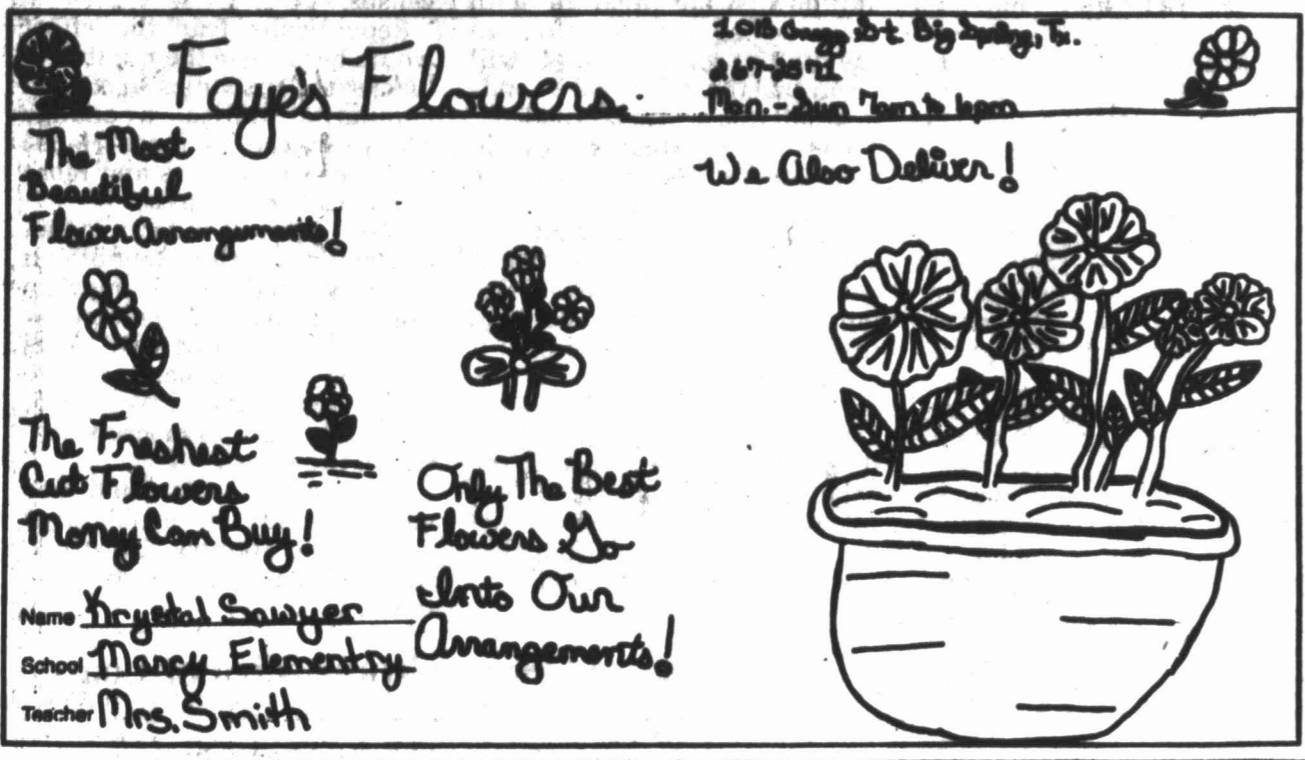 Faye's Flowers
1013 Gregg St. Big Spring, Tx.
267-2571
Mon.-Sun 7am to 6pm
The Most
Beautiful
Flower Arrangements!
We Also Deliver!
The Freshest
Cut Flowers
Money Can Buy!
Only The Best
Flowers Go
Into Our
Arrangements!
Name Krystal Sawyer
School Marcy Elementry
Teacher Mrs. Smith